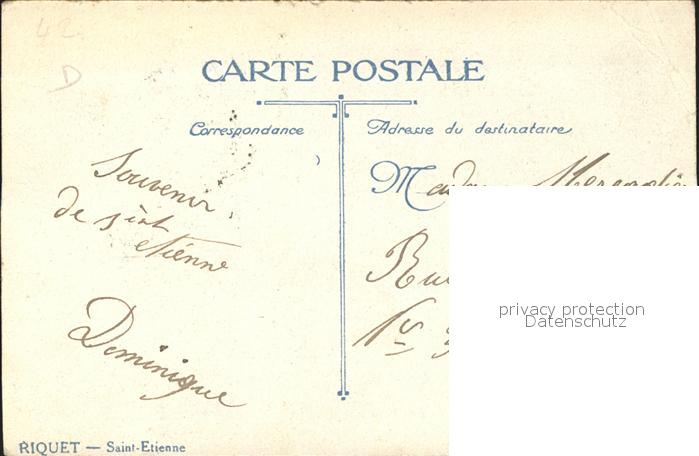 42
D
CARTE POSTALE
Correspondance
Adresse du destinataire
Souvenir
de sint
etienne
Dominique
M
Ru
privacy protection
Datenschutz
RIQUET — Saint-Etienne